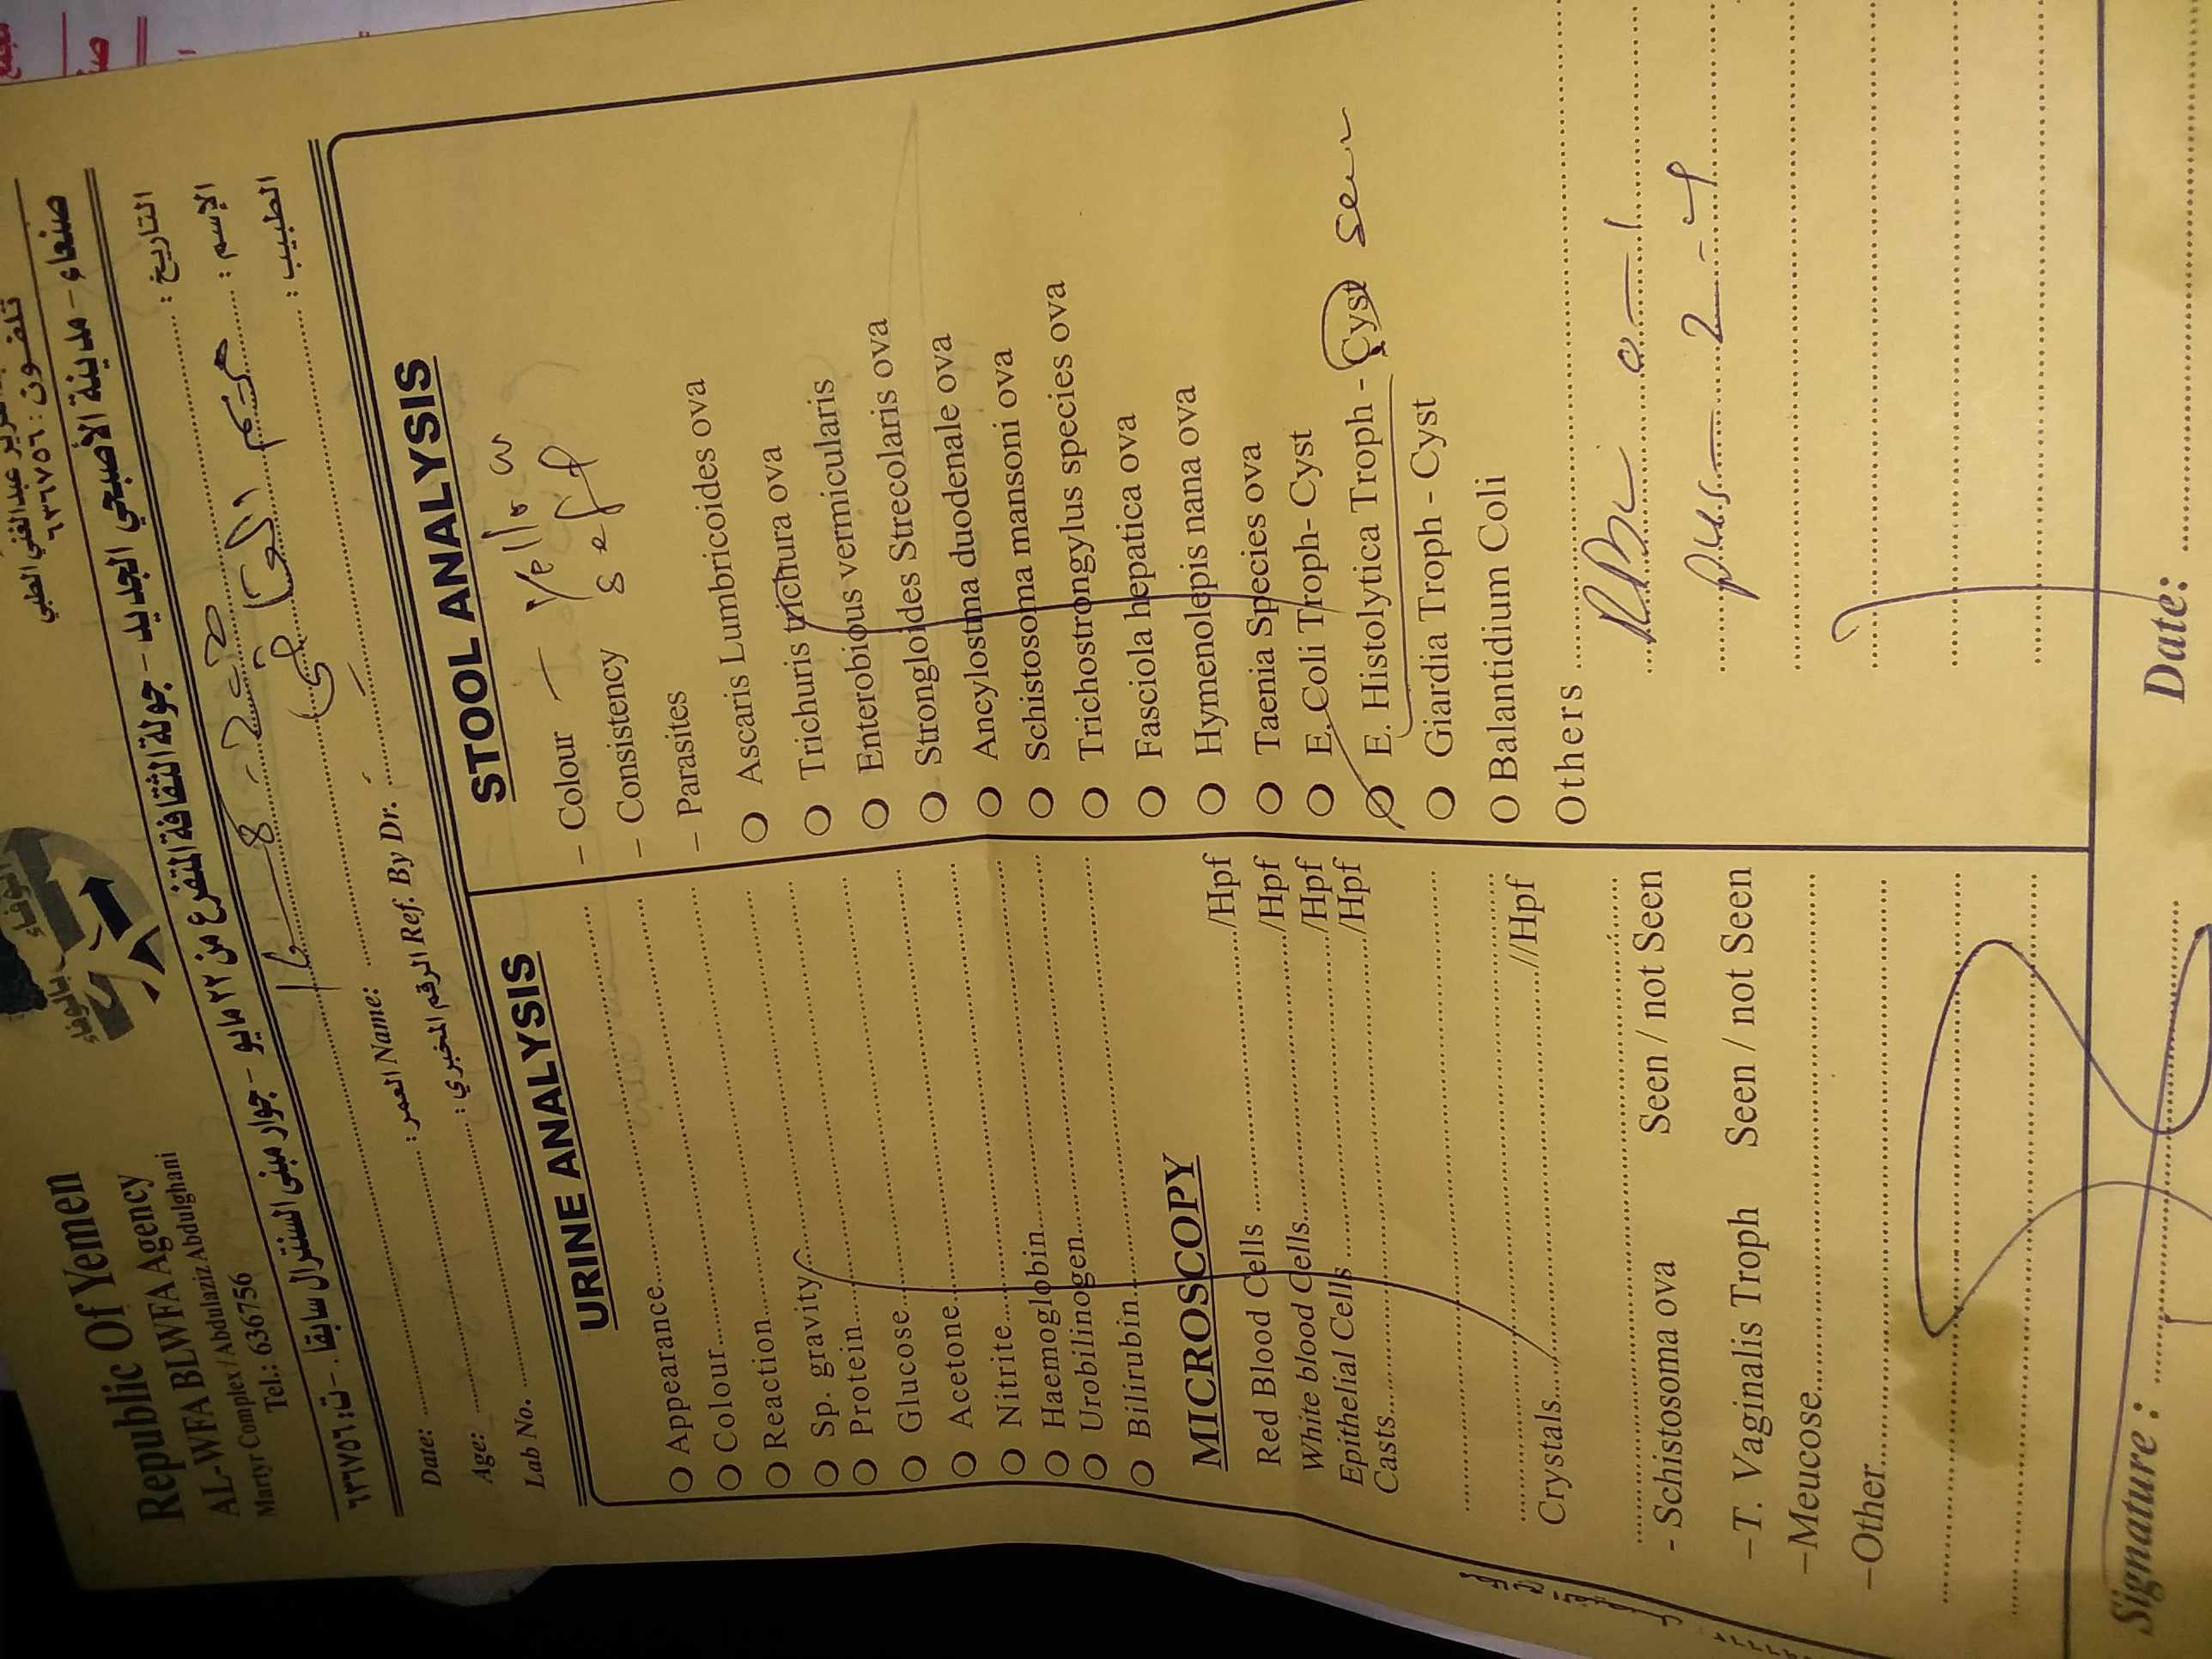 تلفون : ٦٣٦٧٥٦
Republic Of Yemen
AL-WFA BLWFA Agency
Martyr Complex / Abdulaziz Abdulghani
Tel.: 636756
صنعاء - مدينة الأصبحي الجديد - جولة الثقافة المتفرع من ٢٢ مايو - جوار مبنى السنترال سابقا - ت: ٦٣٦٧٥٦
Date: : التاريخ
Name: : الإسم
Age: : العمر
Ref. By Dr. : الطبيب
Lab No. : الرقم المخبري
URINE ANALYSIS
Appearance
Colour
Reaction
Sp. gravity
Protein
Glucose
Acetone
Nitrite
Haemoglobin
Urobilinogen
Bilirubin
MICROSCOPY
/Hpf
Red Blood Cells /Hpf
White blood Cells /Hpf
Epithelial Cells /Hpf
Casts
Crystals //Hpf
- Schistosoma ova Seen / not Seen
– T. Vaginalis Troph Seen / not Seen
– Meucose
– Other
STOOL ANALYSIS
– Colour – Yellow
– Consistency
– Parasites
Ascaris Lumbricoides ova
Trichuris trichura ova
Enterobious vermicularis
Strongloides Strecolaris ova
Ancylostma duodenale ova
Schistosoma mansoni ova
Trichostrongylus species ova
Fasciola hepatica ova
Hymenolepis nana ova
Taenia Species ova
E. Coli Troph- Cyst
E. Histolytica Troph - Cyst seen
Giardia Troph - Cyst
Balantidium Coli
Others
RBC 0 – 1
pus 2 - 4
Signature :
Date: